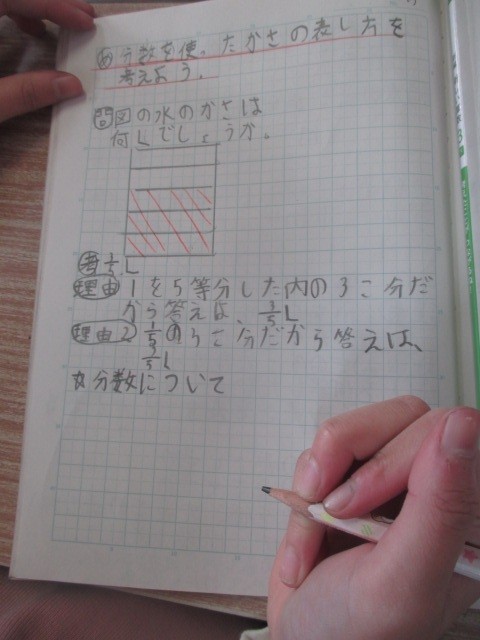 め 分数を使ったかさの表し方を
考えよう。
問 図の水のかさは
何Lでしょうか。
考 3/5 L
理由 1を5等分した内の3こ分だ
から答えは、3/5 L
理由2 1/5の3こ分だから答えは、
3/5 L
分数について